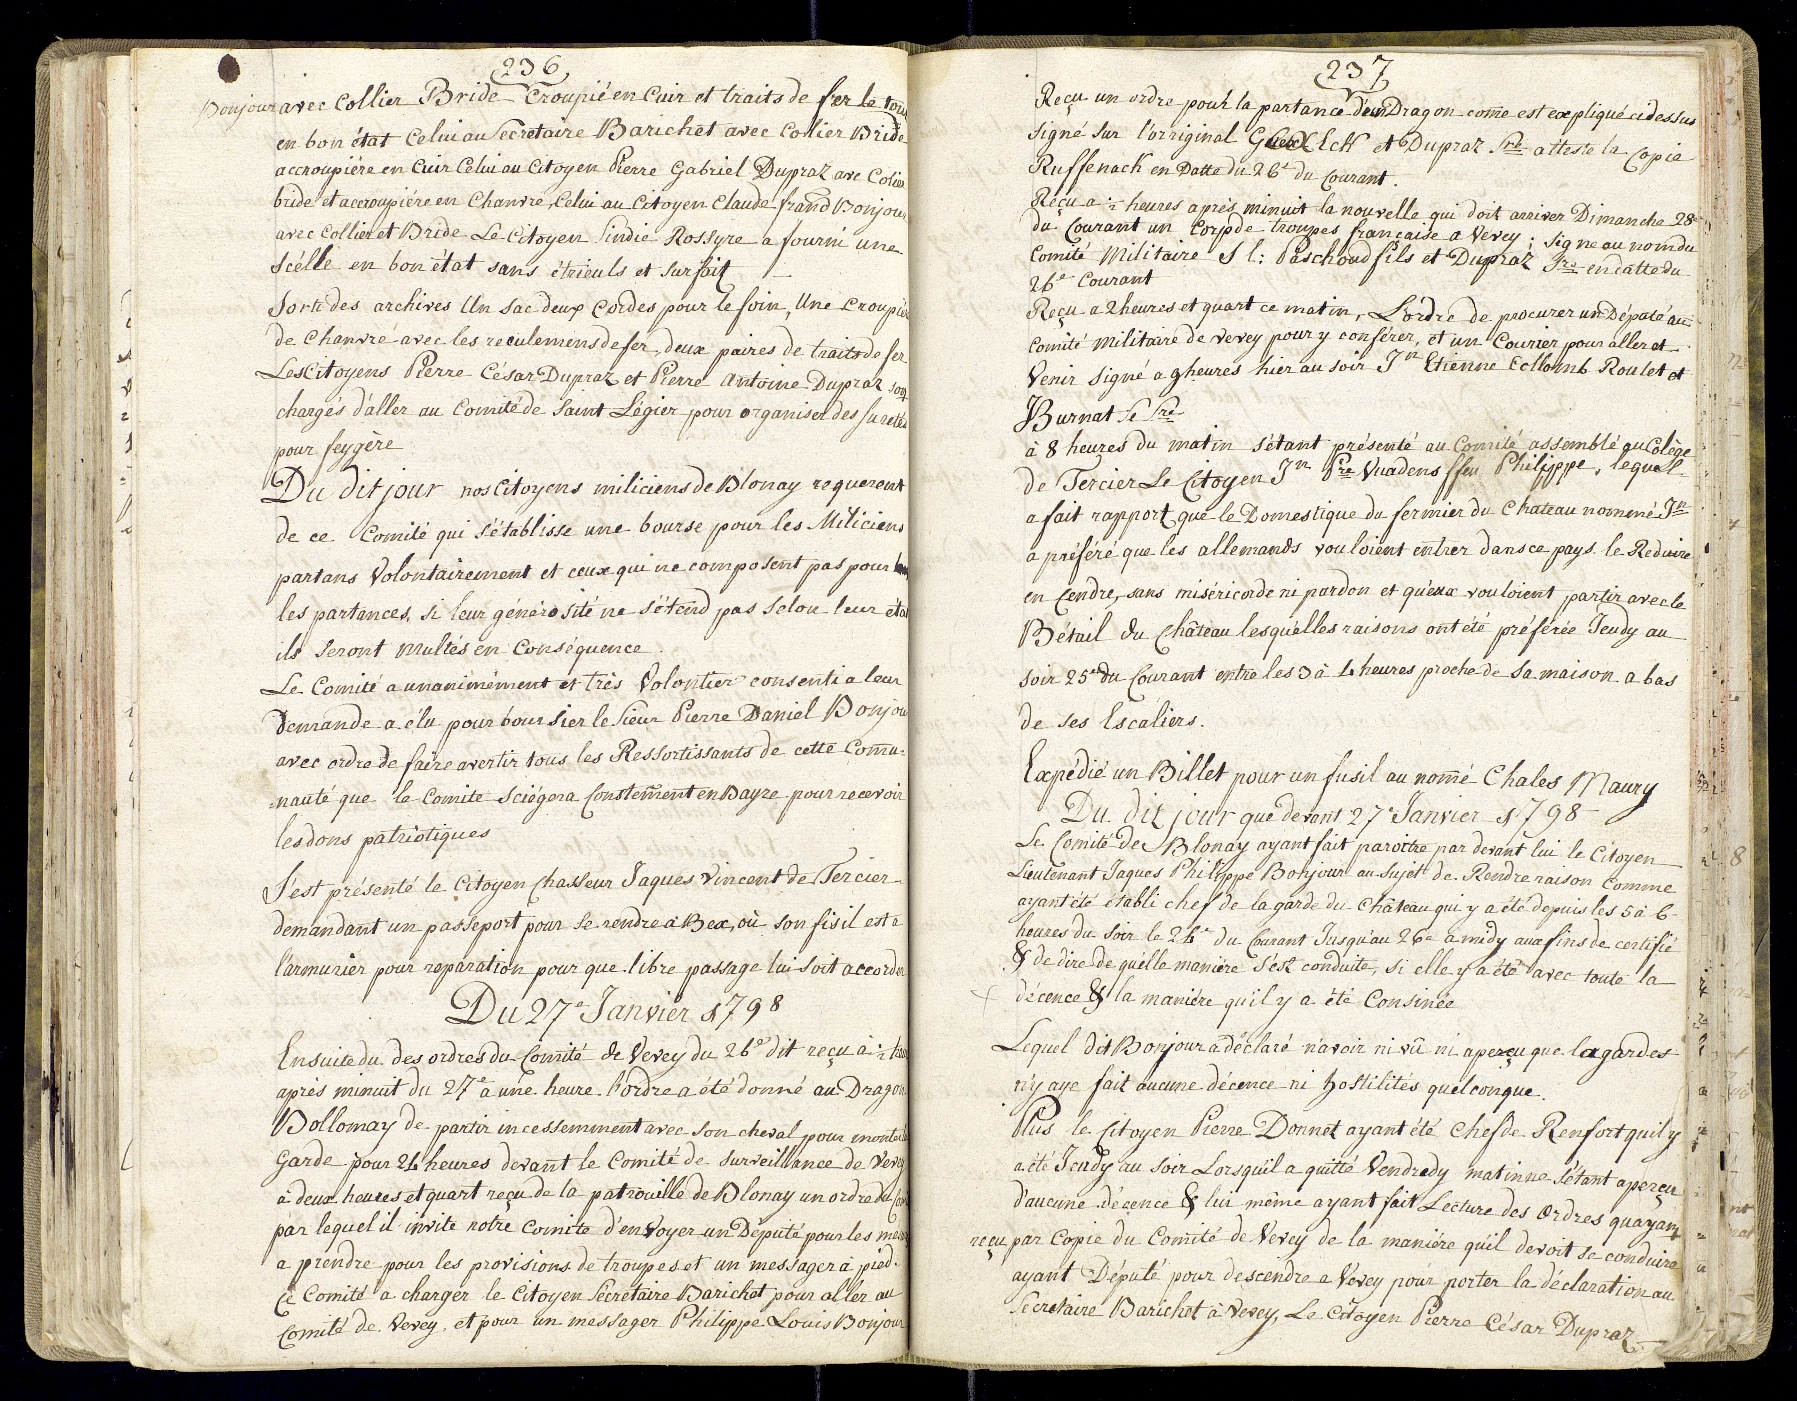 236
Bonjour avec Collier Bride Croupié en Cuir et traits de fer le tout
en bon état Celui au Secretaire Barichet avec Collier Bride
accroupiére en Cuir Celui au Citoyen Pierre Gabriel Dupraz avec Colier
bride et accroupiére en Chanvre, Celui au Citoyen Claude frand Bonjour
avec Collier et Bride Le Citoyen Sindic Rossyre a fourni une
Scélle en bon état sans étrieuls et Surfait
Sorti des archives Un Sac deux Cordes pour le foin, Une Croupiér
de Chanvre avec les reculemens de fer, deux paires de traits de fer
Les Citoyens Pierre César Dupraz et Pierre Antoine Dupraz sont
chargés d'aller au Comité de Saint Légier pour organiser des Suretés
pour feygère
Du dit jour nos Citoyens miliciens de Blonay requerent
de ce Comité qui s'établisse une bourse pour les Miliciens
partans Volontairement et ceux qui ne composent pas pour
les partances, si leur générosité ne s'étend pas Selon leur état
ils Seront multés en Conséquence.
Le Comité a unanimément et très Volontier consenti a leur
Demande a élu pour boursier le Sieur Pierre Daniel Bonjour
avec ordre de faire avertir tous les Ressortissants de cette Comu-
-nauté que le Comite Sciégera Constement en Bayze pour recevoir
les dons patriotiques
S'est présenté le Citoyen Chasseur Jaques Vincent de Tercier
demandant un passeport pour se rendre à Bex, où son fisil est a
l'armurier pour reparation pour que libre passage lui soit accordé
Du 27e Janvier 1798
Ensuite du des ordres du Comité de Vevey du 26e dit reçu à ½ heure
après minuit du 27e à une heure l'ordre a été donné au Dragon
Dollomay de partir incessemment avec son cheval pour monter la
Garde pour 24 heures devant le Comité de Surveillance de Vevey
à deux heures et quart reçu de la patrouille de Blonay un ordre du
par lequel il invite notre Comite d'envoyer un Député pour les
a prendre pour les provisions de troupes et un messager à pied.
Ce Comité a charger le Citoyen Secretaire Barichet pour aller au
Comité de Vevey, et pour un messager Philippe Louis Bonjour
237
Reçu un ordre pour la partance d'un Dragon come est expliqué ci dessus
Signé Sur l'original et Dupraz Sre atteste la Copie
Ruffenach en Datte du 26e du Courant.
Reçu a ½ heures après minuit la nouvelle qui doit arriver Dimanche 28e
du Courant un Corp de troupes française a Vevey; Signe au nom du
Comité Militaire S l: Paschoud fils et Dupraz Sre en datte du
26e Courant
Reçu a 2 heures et quart ce matin, L'ordre de procurer un Député au
Comité Militaire de Vevey pour y conférer, et un Courier pour aller et
Venir Signé a 9 heures hier au soir Jn Etienne Collomb Roulet et
JBurnat le Sre
à 8 heures du matin s'étant présenté au Comité assemblé au Colège
de Tercier Le Citoyen Jn Pre Vuadens ffeu Philippe, lequel
a fait rapport que le Domestique du fermier du Chateau nommé Jn
a préféré que les allemands vouloient entrer dans ce pays. le Reduire
en Cendre, sans miséricorde ni pardon et qu'eux vouloient partir avec le
Bétail du Château lesquélles raisons ont été préférée Jeudy au
soir 25e du Courant entre les 3 à 4 heures proche de sa maison a bas
de ses Escaliers.
Expédié un Billet pour un fusil au nommé Chales Maury
Du dit jour que devant 27e Janvier 1798
Le Comité de Blonay ayant fait paroitre par devant lui le Citoyen
Lieutenant Jaques Philippe Bonjour au Sujet de Rendre raison Comme
ayant été établi chef de la garde du Château qui y a été depuis les 5 à 6
heures du Soir le 24e du Courant Jusqu'au 26e a midy aux fins de certifié
& de dire de quélle maniére s'est conduite, si elle y a été avec toute la
décence & la maniére qu'il y a été Consinée
Lequel dit Bonjour a déclaré n'avoir ni vû ni aperçu que la gardes
n'y aye fait aucune décence ni hostilités quelconque.
Plus le Citoyen Pierre Donnet ayant été Chef de Renfort qu'il y
a été Jeudy au soir Lorsqu'il a quitté Vendredy matinne s'étant aperçu
d'aucune décence & lui même ayant fait Lecture des Ordres quayant
reçu par Copie du Comité de Vevey de la maniére qu'il devoit se conduire
ayant Député pour descendre a Vevey pour porter la déclaration au
Secretaire Barichet à Vevey, Le Citoyen Pierre César Dupraz